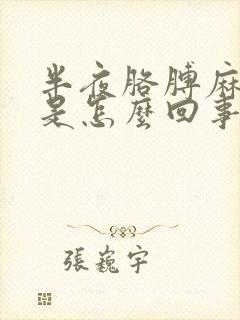 半夜胳膊麻
是怎麼回事
張巍宇